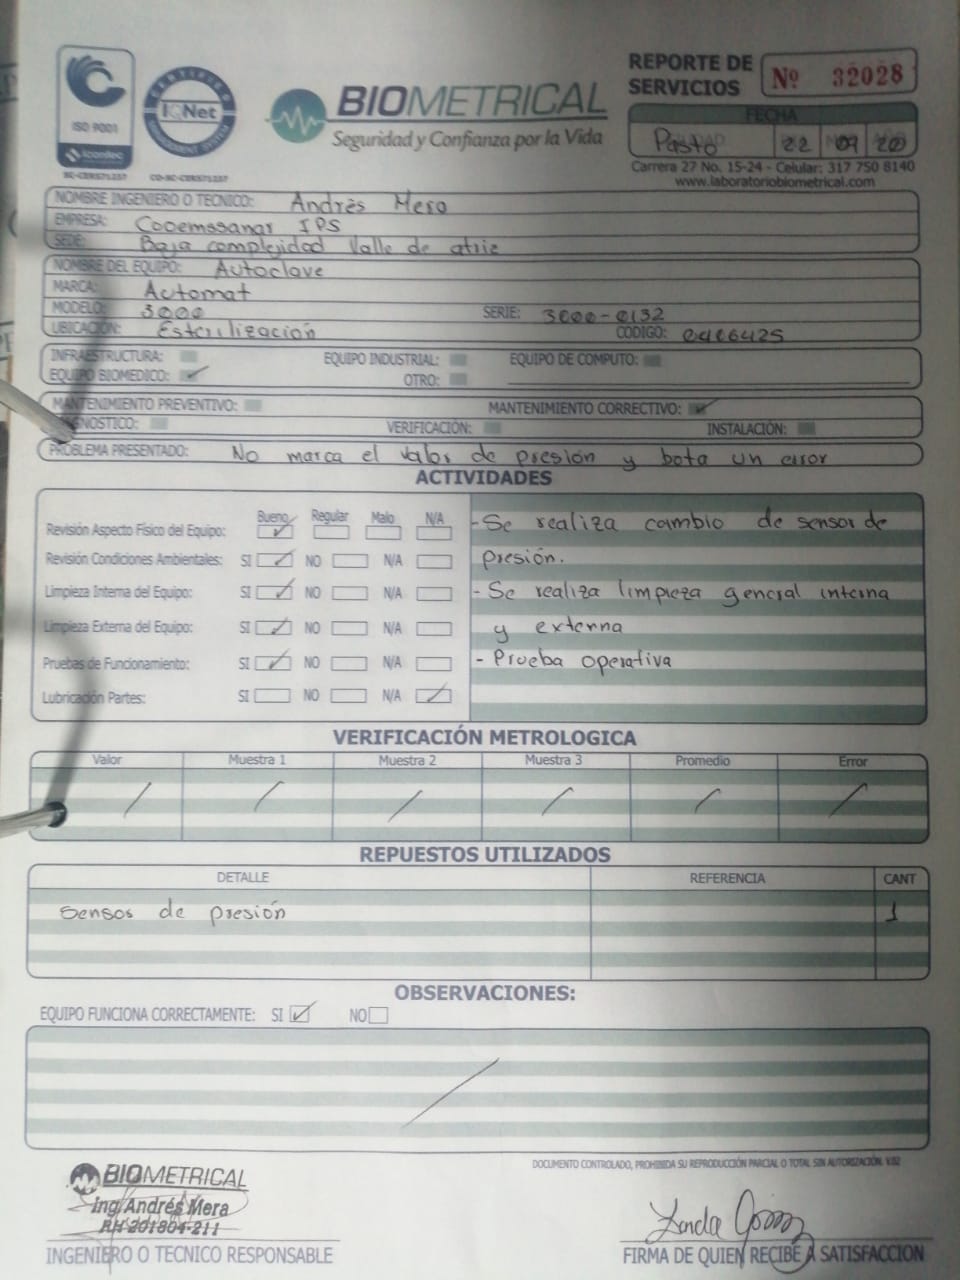 ISO 9001
icontec
SC-CER571237
CERTIFIED
IQNet
MANAGEMENT SYSTEM
CO-SC-CER571237
BIOMETRICAL
Seguridad y Confianza por la Vida
REPORTE DE SERVICIOS
Nº 32028
FECHA
Pasto 22 09 20
Carrera 27 No. 15-24 - Celular: 317 750 8140
www.laboratoriobiometrical.com
NOMBRE INGENIERO O TECNICO: Andrés Mera
EMPRESA: Cooemssanar IPS
SEDE: Baja complejidad Valle de atriz
NOMBRE DEL EQUIPO: Autoclave
MARCA: Automat
MODELO: 3000 SERIE: 3000-0132
UBICACIÓN: Esterilización CÓDIGO: 0406425
INFRAESTRUCTURA: EQUIPO INDUSTRIAL: EQUIPO DE COMPUTO:
EQUIPO BIOMEDICO: ✓ OTRO:
MANTENIMIENTO PREVENTIVO: MANTENIMIENTO CORRECTIVO: ✓
DIAGNOSTICO: VERIFICACIÓN: INSTALACIÓN:
PROBLEMA PRESENTADO: No marca el valor de presión y bota un error
ACTIVIDADES
Bueno Regular Malo N/A
Revisión Aspecto Físico del Equipo: ✓
Revisión Condiciones Ambientales: SI ✓ NO N/A
Limpieza Interna del Equipo: SI ✓ NO N/A
Limpieza Externa del Equipo: SI ✓ NO N/A
Pruebas de Funcionamiento: SI ✓ NO N/A
Lubricación Partes: SI NO N/A ✓
- Se realiza cambio de sensor de
presión.
- Se realiza limpieza general interna
y externa
- Prueba operativa
VERIFICACIÓN METROLOGICA
Valor Muestra 1 Muestra 2 Muestra 3 Promedio Error
/ / / / / /
REPUESTOS UTILIZADOS
DETALLE REFERENCIA CANT
Sensos de presión 1
OBSERVACIONES:
EQUIPO FUNCIONA CORRECTAMENTE: SI ✓ NO
/
DOCUMENTO CONTROLADO, PROHIBIDA SU REPRODUCCIÓN PARCIAL O TOTAL SIN AUTORIZACIÓN. V.02
BIOMETRICAL
Ing Andrés Mera
RH 201804-211
INGENIERO O TECNICO RESPONSABLE
FIRMA DE QUIEN RECIBE A SATISFACCION